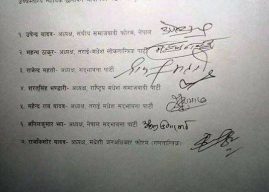 १. उपेन्द्र यादव- अध्यक्ष, संघीय समाजवादी फोरम, नेपाल
२. महन्थ ठाकुर- अध्यक्ष, तराई-मधेश लोकतान्त्रिक पार्टी
३. राजेन्द्र महतो- अध्यक्ष, सद्भावना पार्टी
४. सरतसिंह भण्डारी- अध्यक्ष, राष्ट्रिय मधेश समाजवादी पार्टी
५. महेन्द्र राय यादव- अध्यक्ष, तराई मधेश सद्भावना पार्टी
६. अनिलकुमार झा- अध्यक्ष, नेपाल सद्भावना पार्टी
७. राजकिशोर यादव- अध्यक्ष, मधेशी जनअधिकार फोरम (गणतान्त्रिक)